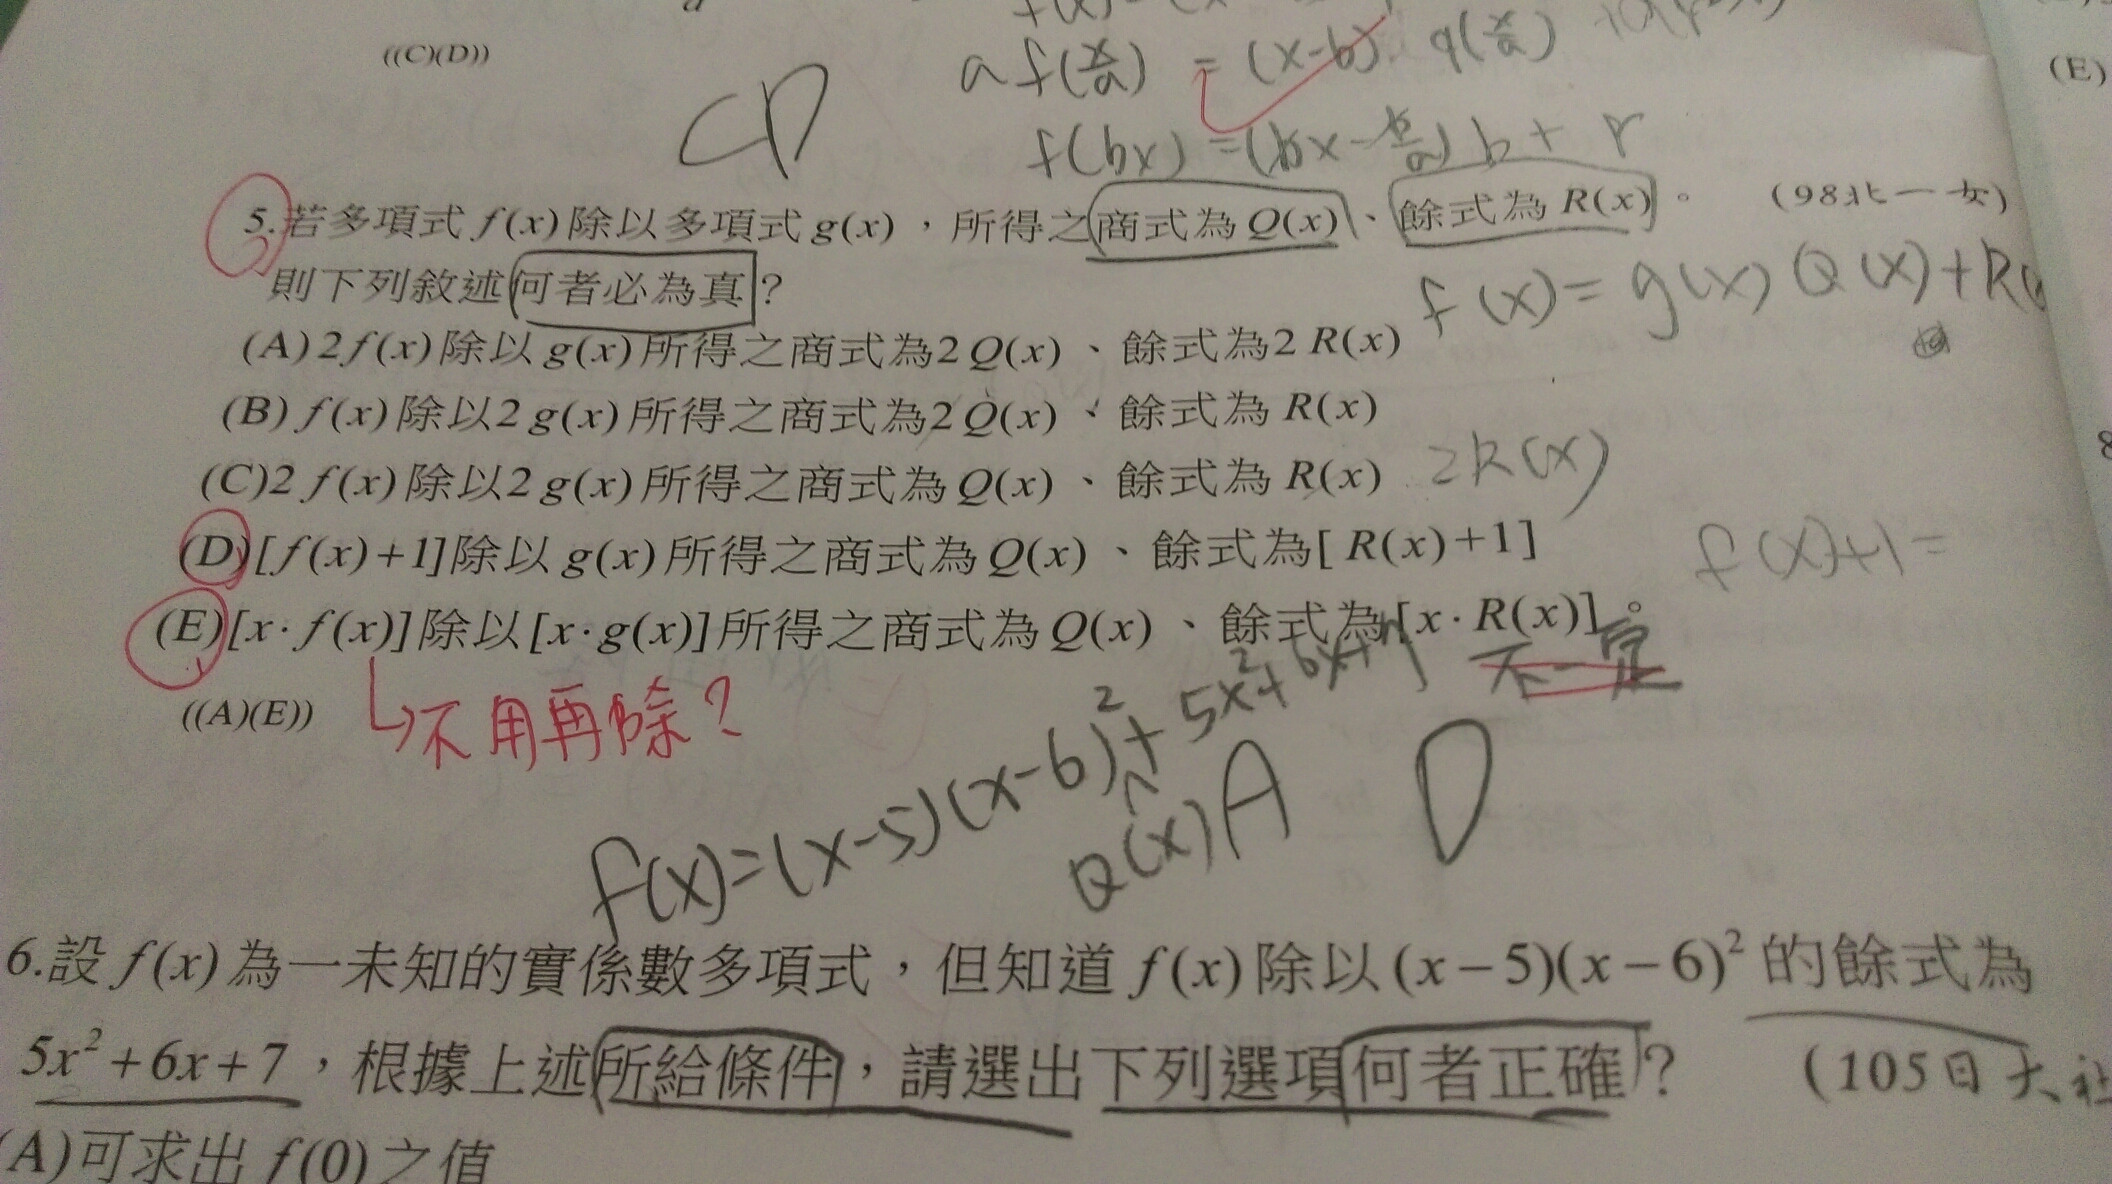 ((C)(D))
CD
a f(x/a) = (x-b) · q(x/a)
5.若多項式 f(x)除以多項式 g(x)，所得之商式為 Q(x)、餘式為 R(x)。 (98北一女)
則下列敘述何者必為真?
f(x)= g(x) Q(x)+R(
(A)2f(x)除以 g(x)所得之商式為2Q(x)、餘式為2 R(x)
(B) f(x)除以2 g(x)所得之商式為2Q(x)、餘式為 R(x)
(C)2 f(x)除以2 g(x)所得之商式為 Q(x)、餘式為 R(x) 2R(x)
(D)[f(x)+1]除以 g(x)所得之商式為 Q(x)、餘式為[R(x)+1] f(x)+1=
(E)[x· f(x)]除以[x·g(x)]所得之商式為 Q(x)、餘式為[x·R(x)]。
不一定
((A)(E))
不用再除?
f(x)=(x-5)(x-6)²+5x²+6x+7
Q(x)
A D
6.設 f(x)為一未知的實係數多項式，但知道 f(x)除以(x-5)(x-6)²的餘式為
5x²+6x+7，根據上述所給條件，請選出下列選項何者正確? (105日大社
(A)可求出 f(0)之值
(E)
8